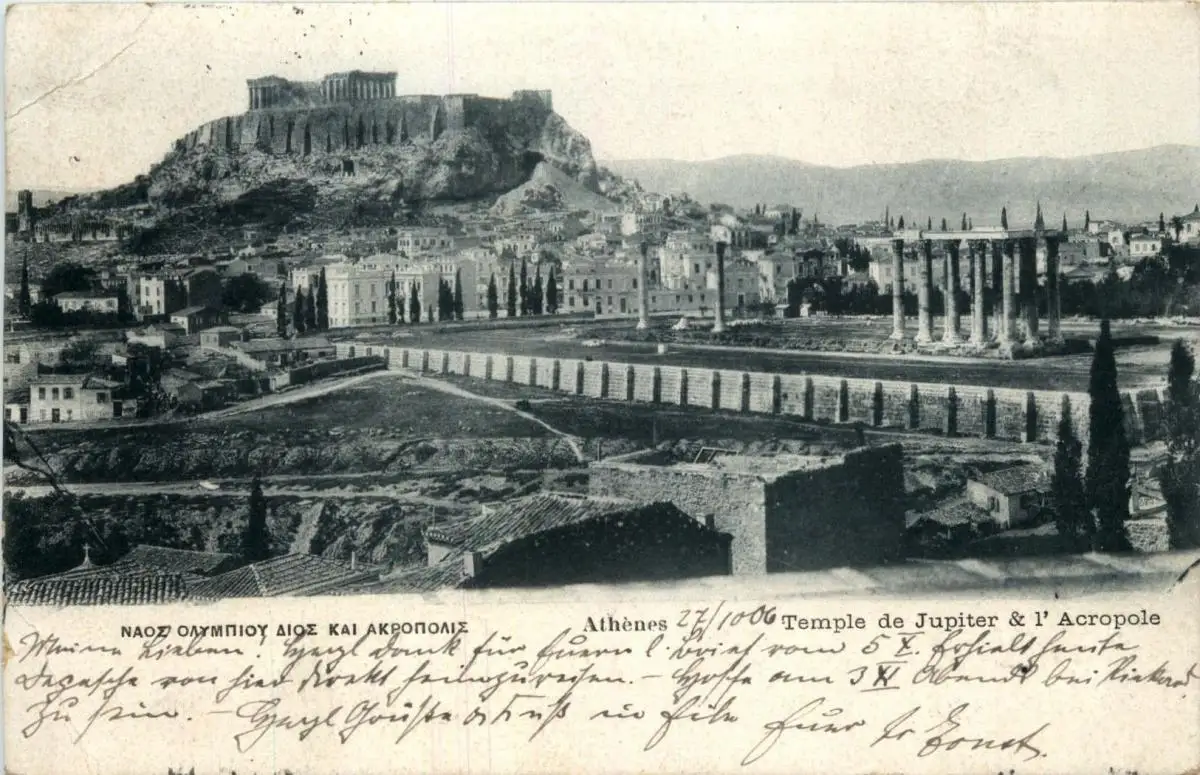 ΝΑΟΣ ΟΛΥΜΠΙΟΥ ΔΙΟΣ ΚΑΙ ΑΚΡΟΠΟΛΙΣ Athènes 27/10 06 Temple de Jupiter & l' Acropole
Meine Lieben! Herzl. Dank für Euern l. Brief vom 5 X. Erhielt heute
Depesche von hier direkt heimzureisen. – Hoffe am 3 XI Abends bei
zu sein. – Herzl Grüße & Kuß in Eile Euer tr Ernst.